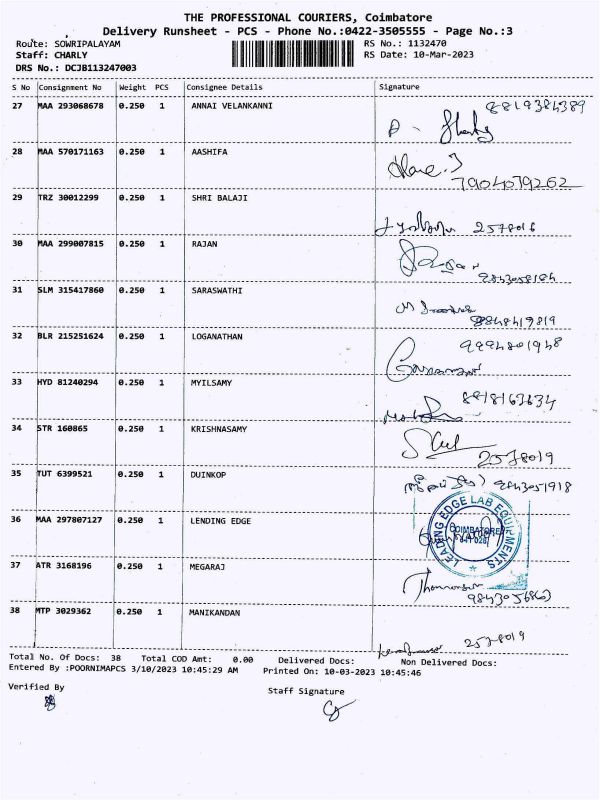 THE PROFESSIONAL COURIERS, Coimbatore
Delivery Runsheet - PCS - Phone No.:0422-3505555 - Page No.:3
Route: SOWRIPALAYAM RS No.: 1132470
Staff: CHARLY RS Date: 10-Mar-2023
DRS No.: DCJB113247003
S No Consignment No Weight PCS Consignee Details Signature
27 MAA 293068678 0.250 1 ANNAI VELANKANNI
28 MAA 570171163 0.250 1 AASHIFA
7904079262
29 TRZ 30012299 0.250 1 SHRI BALAJI
2578016
30 MAA 299007815 0.250 1 RAJAN
31 SLM 315417860 0.250 1 SARASWATHI
32 BLR 215251624 0.250 1 LOGANATHAN
33 HYD 81240294 0.250 1 MYILSAMY
34 STR 160865 0.250 1 KRISHNASAMY
2578019
35 TUT 6399521 0.250 1 DUINKOP
9843051918
36 MAA 297807127 0.250 1 LENDING EDGE
LEADING EDGE LAB EQUIPMENTS
COIMBATORE
37 ATR 3168196 0.250 1 MEGARAJ
38 MTP 3029362 0.250 1 MANIKANDAN
2578019
Total No. Of Docs: 38 Total COD Amt: 0.00 Delivered Docs: Non Delivered Docs:
Entered By :POORNIMAPCS 3/10/2023 10:45:29 AM Printed On: 10-03-2023 10:45:46
Verified By Staff Signature